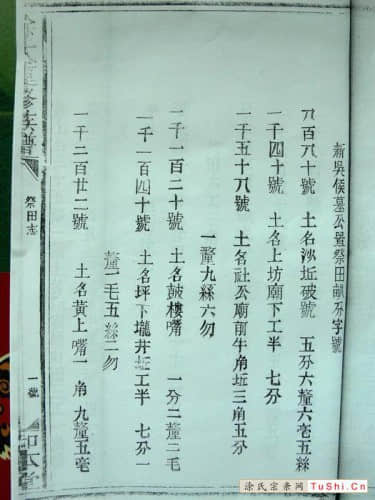 新吳侯墓公置祭田畝分字號
八百八十號 土名沙坵破號 五分六釐六毫五絲
一千四十號 土名上坊廟下工半 七分
一千五十八號 土名社公廟前牛角坵三角五分
一釐九絲六勿
一千一百二十號 土名鼓樓嘴 一分二釐二毛
一千一百四十號 土名坪下壠井坵工半 七分一
釐一毛五絲二勿
一千二百廿二號 土名黃上嘴一角 九釐五毫
修族譜
祭田志
涂氏宗亲网
TuShi.Cn